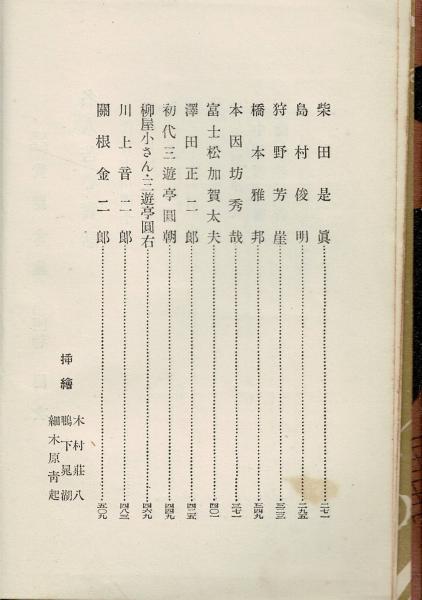 柴田是眞……二七一
島村俊明……二九五
狩野芳崖……三二三
橋本雅邦……三四九
本因坊秀哉……三七一
富士松加賀太夫……四〇一
澤田正二郎……四二五
初代三遊亭圓朝……四四九
柳屋小さん・三遊亭圓右……四六九
川上音二郎……四八三
關根金二郎……五〇九
挿繪
木村莊八
鴨下晁湖
細木原靑起